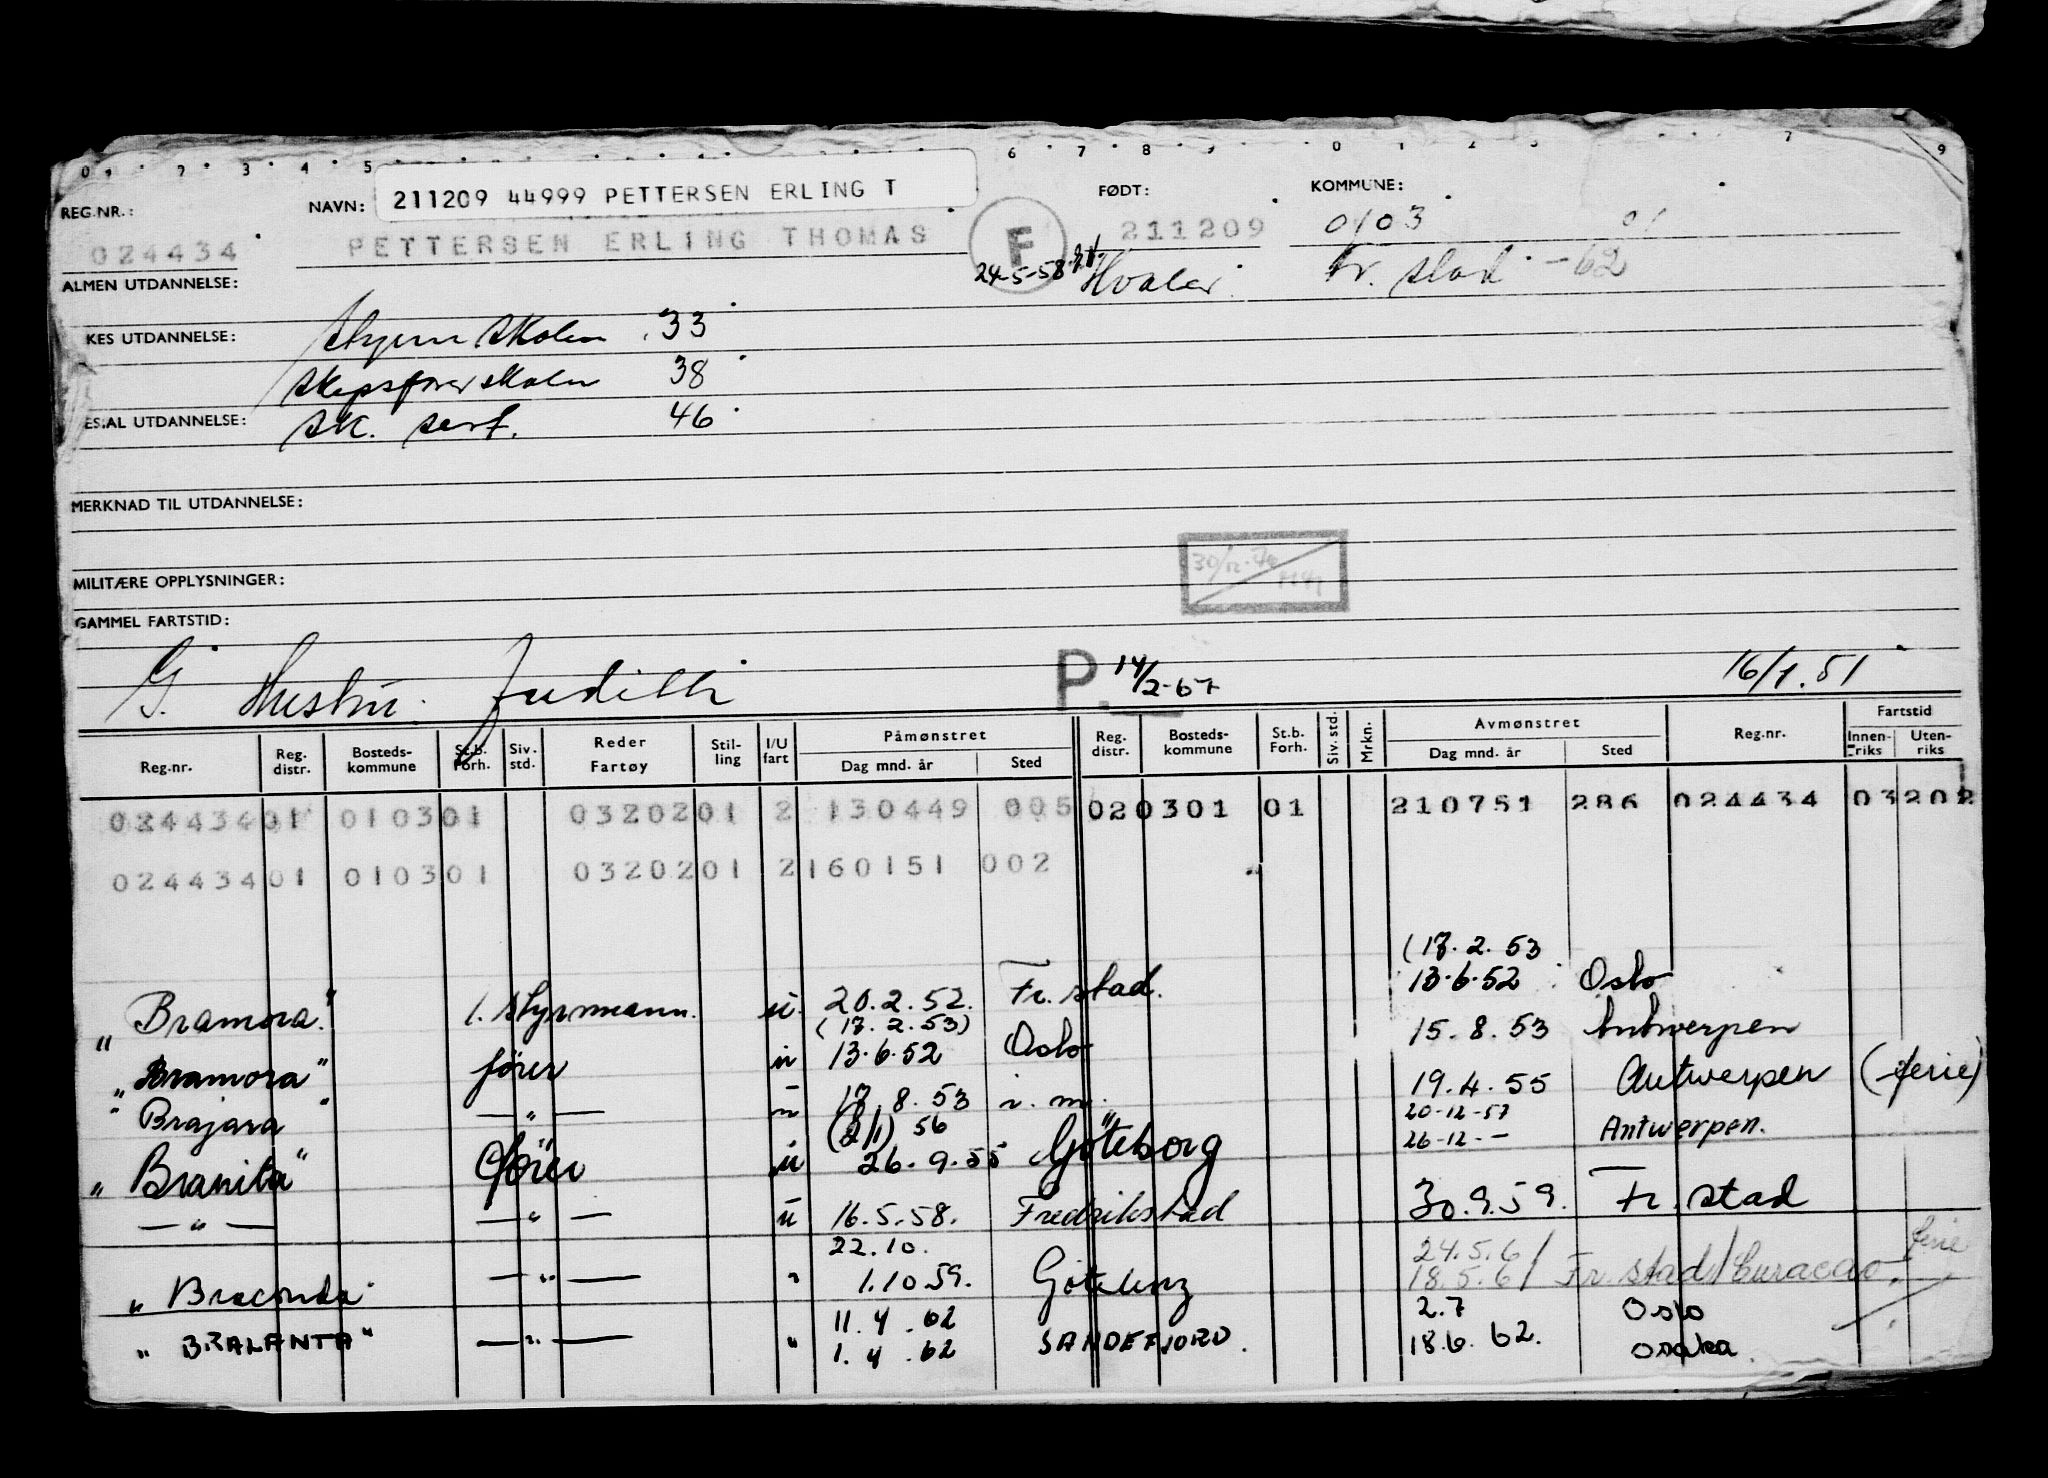 0 1 2 3 4 5 6 7 8 9 0 1 2 3 7 9
REG.NR.: NAVN: 211209 44999 PETTERSEN ERLING T FØDT: KOMMUNE:
024434 PETTERSEN ERLING THOMAS F 211209 0103 01
ALMEN UTDANNELSE: 24-5-58 Hvaler Fr. stad -62
KES UTDANNELSE: Styrm skolen 33
Skipsførerskolen 38
ESIAL UTDANNELSE: SK. sert. 46
MERKNAD TIL UTDANNELSE:
30/12-70
MILITÆRE OPPLYSNINGER:
GAMMEL FARTSTID:
G. Hustru: Judith P. 14/2-67 16/1.51
Reg.nr. Reg. distr. Bosteds-kommune St.b. Forh. Siv. std. Reder Fartøy Stil-ling I/U fart Påmønstret Dag mnd. år Sted Reg. distr. Bosteds-kommune St.b. Forh. Siv. std. Mrkn. Avmønstret Dag mnd. år Sted Reg.nr. Fartstid Innen-riks Uten-riks
024434 01 0103 01 0320201 2 130449 005 02 0301 01 210751 286 024434 03 202
024434 01 0103 01 0320201 2 160151 002
(17.2.53
"Bramora." 1. styrmann. u. 20.2.52. Fr. stad. 13.6.52 Oslo
(17.2.53)
"Bramora" fører u 13.6.52 Oslo 15.8.53 Antwerpen
"Brajara" — " — u 17.8.53 i. m. 19.4.55 Antwerpen (ferie)
(2/1) 56 20-12-57
"Branita" fører u 26.9.55 Göteborg 26-12-- Antwerpen.
— " — — " — u 16.5.58. Fredrikstad 30.9.59. Fr. stad
22.10. 24.5.61 ferie
"Braconda" — " — " 1.10.59. Göteborg 18.5.61 Fr. stad/Curacao
11.4.62 2.7 Oslo
"BRALANTA" — " — " 1.4.62 SANDEFJORD. 18.6.62. Osaka.